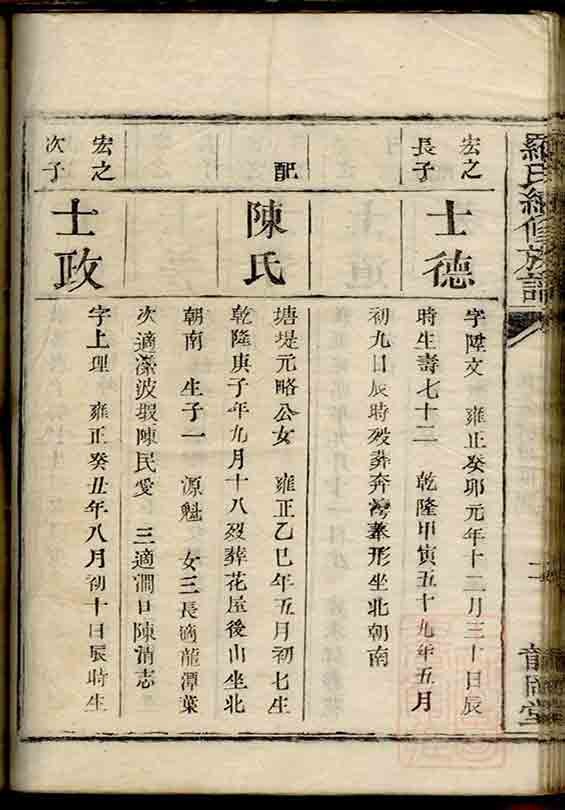 羅氏續修族譜
二
宏之
長子
士德
字陞文 雍正癸卯元年十二月三十日辰
時生壽七十二 乾隆甲寅五十九年五月
初九日辰時歿葬奔灣萘形坐北朝南
配
陳氏
塘堤元略公女 雍正乙巳年五月初七生
乾隆庚子年九月十八歿葬花屋後山坐北
朝南 生子一 源魁 女三長適龍潭葉
次適濠波塅陳民愛 三適澗口陳清志
宏之
次子
士政
字上理 雍正癸丑年八月初十日辰時生